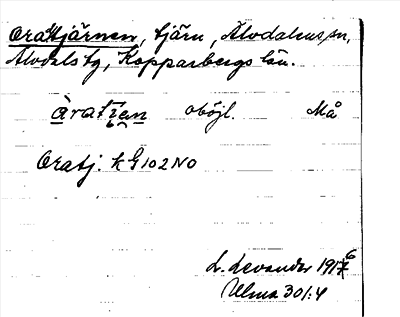 Oratjärnen, tjärn, Älvdalens sn,
Älvdals tg, Kopparbergs län.
àratiẹn oböjl. Må
Oratj. k G102NO
L. Levander 1916
Ulma 301:4